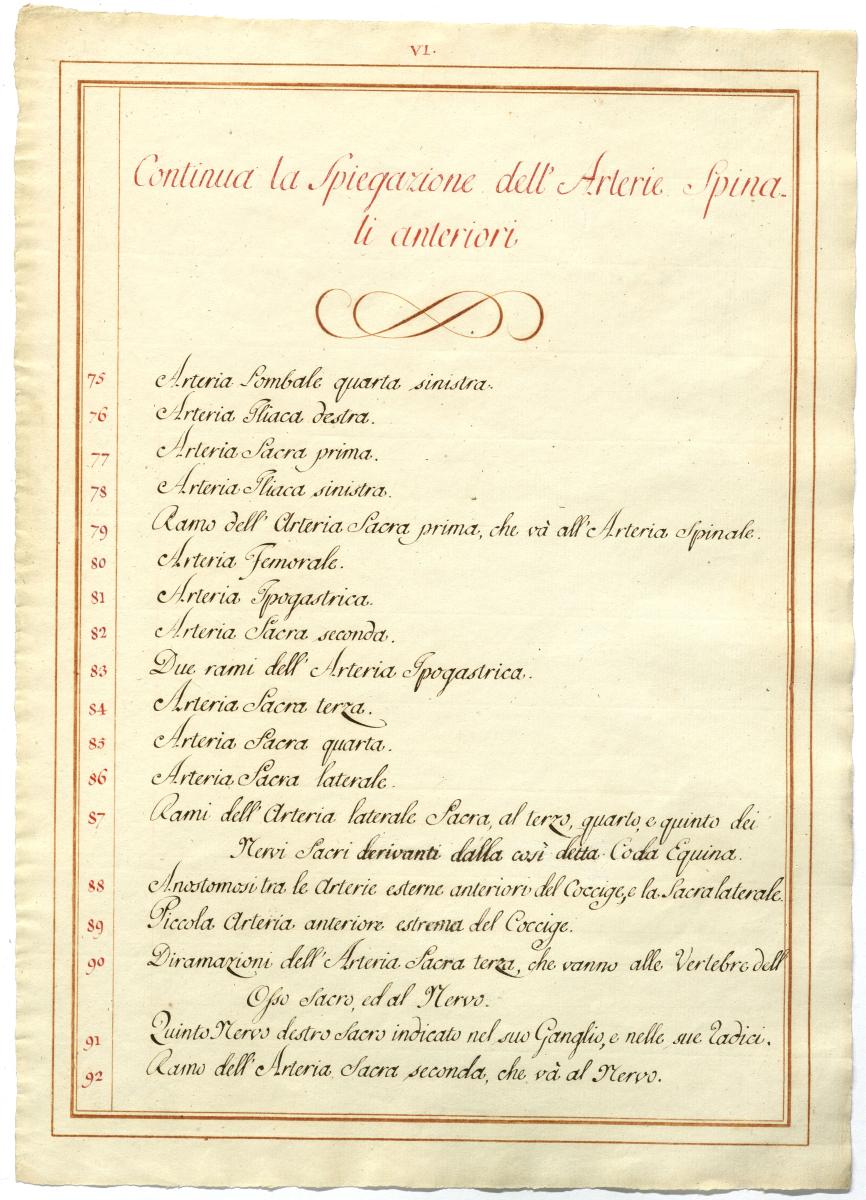 VI.
Continua la Spiegazione dell' Arterie Spina-
li anteriori
75 Arteria Lombale quarta sinistra.
76 Arteria Iliaca destra.
77 Arteria Sacra prima.
78 Arteria Iliaca sinistra.
79 Ramo dell' Arteria Sacra prima, che và all' Arteria Spinale.
80 Arteria Femorale.
81 Arteria Ipogastrica.
82 Arteria Sacra seconda.
83 Due rami dell' Arteria Ipogastrica.
84 Arteria Sacra terza.
85 Arteria Sacra quarta.
86 Arteria Sacra laterale.
87 Rami dell' Arteria laterale Sacra, al terzo, quarto, e quinto dei
Nervi Sacri derivanti dalla così detta Coda Equina.
88 Anostomosi tra le Arterie esterne anteriori del Coccige, e la Sacra laterale.
89 Piccola Arteria anteriore estrema del Coccige.
90 Diramazioni dell' Arteria Sacra terza, che vanno alle Vertebre dell'
Osso Sacro, ed al Nervo.
91 Quinto Nervo destro Sacro indicato nel suo Ganglio, e nelle sue Radici.
92 Ramo dell' Arteria Sacra seconda, che và al Nervo.